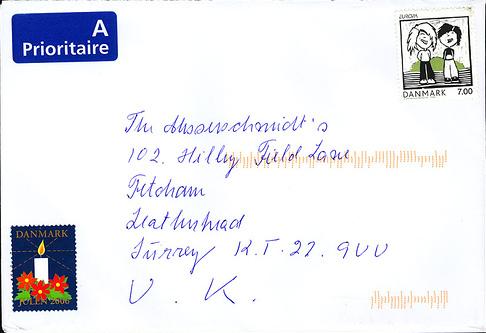 A
Prioritaire
EUROPA
DANMARK 7.00
The Messerschmidt's
102. Hilley Field Lane
Fetcham
Leatherhead
Surrey K.T. 22. 9UU
U. K.
DANMARK
JULEN 2006